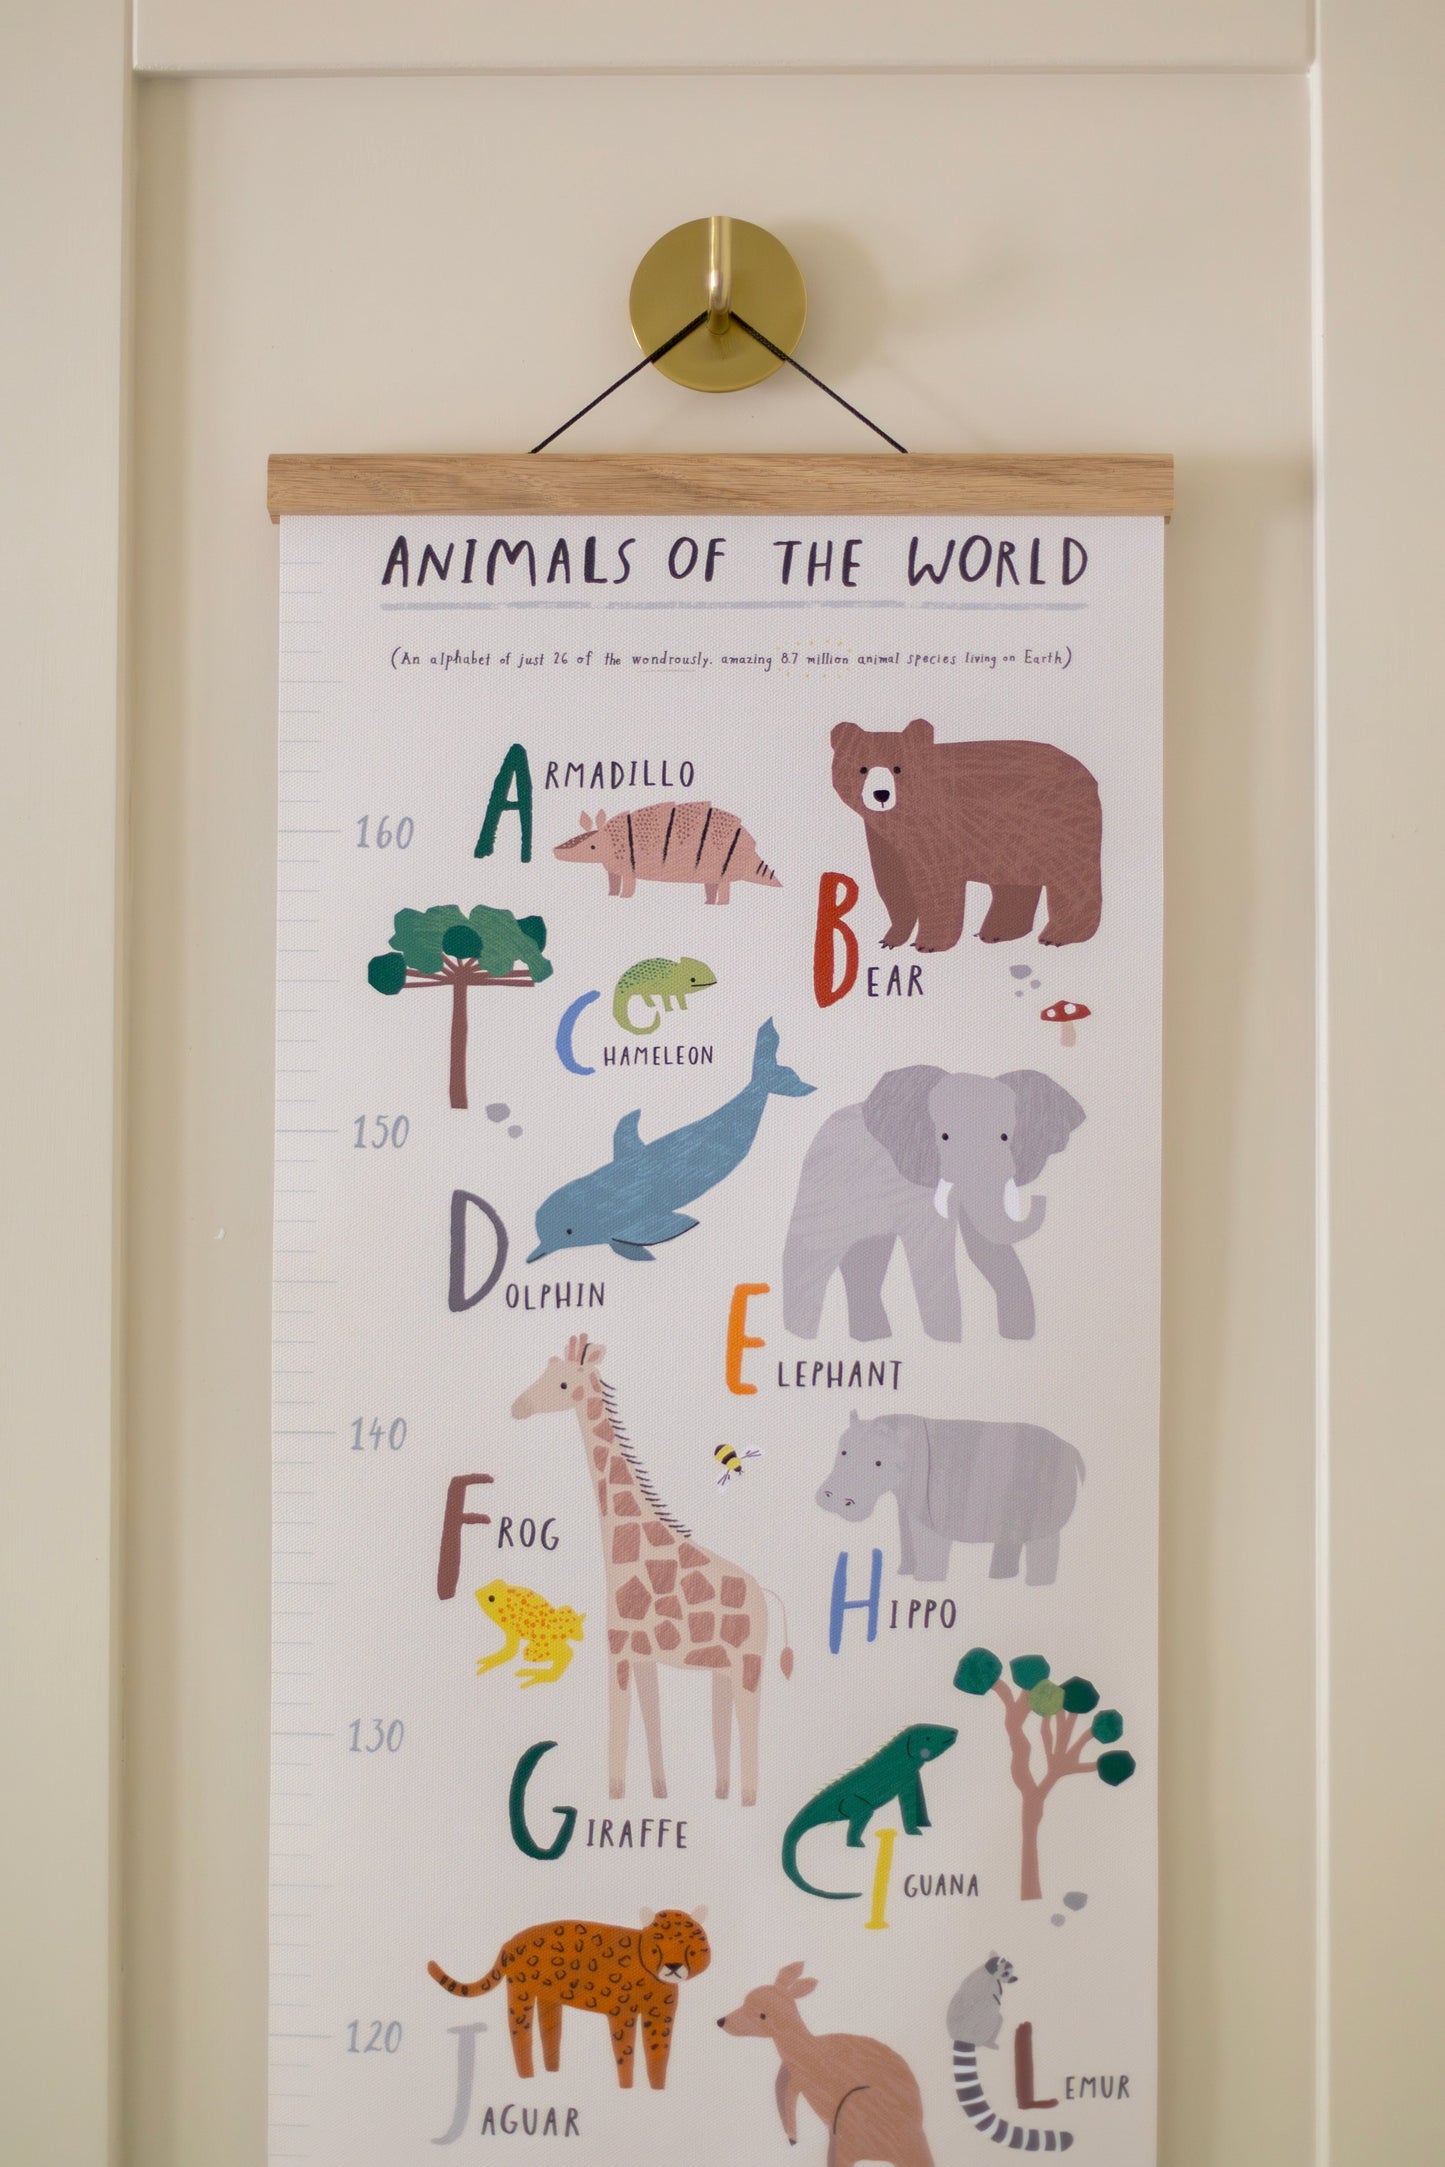 ANIMALS OF THE WORLD
(An alphabet of just 26 of the wondrously, amazing 8.7 million animal species living on Earth)
ARMADILLO
160
BEAR
CHAMELEON
150
DOLPHIN
ELEPHANT
140
FROG
HIPPO
130
GIRAFFE
IGUANA
120
LEMUR
JAGUAR